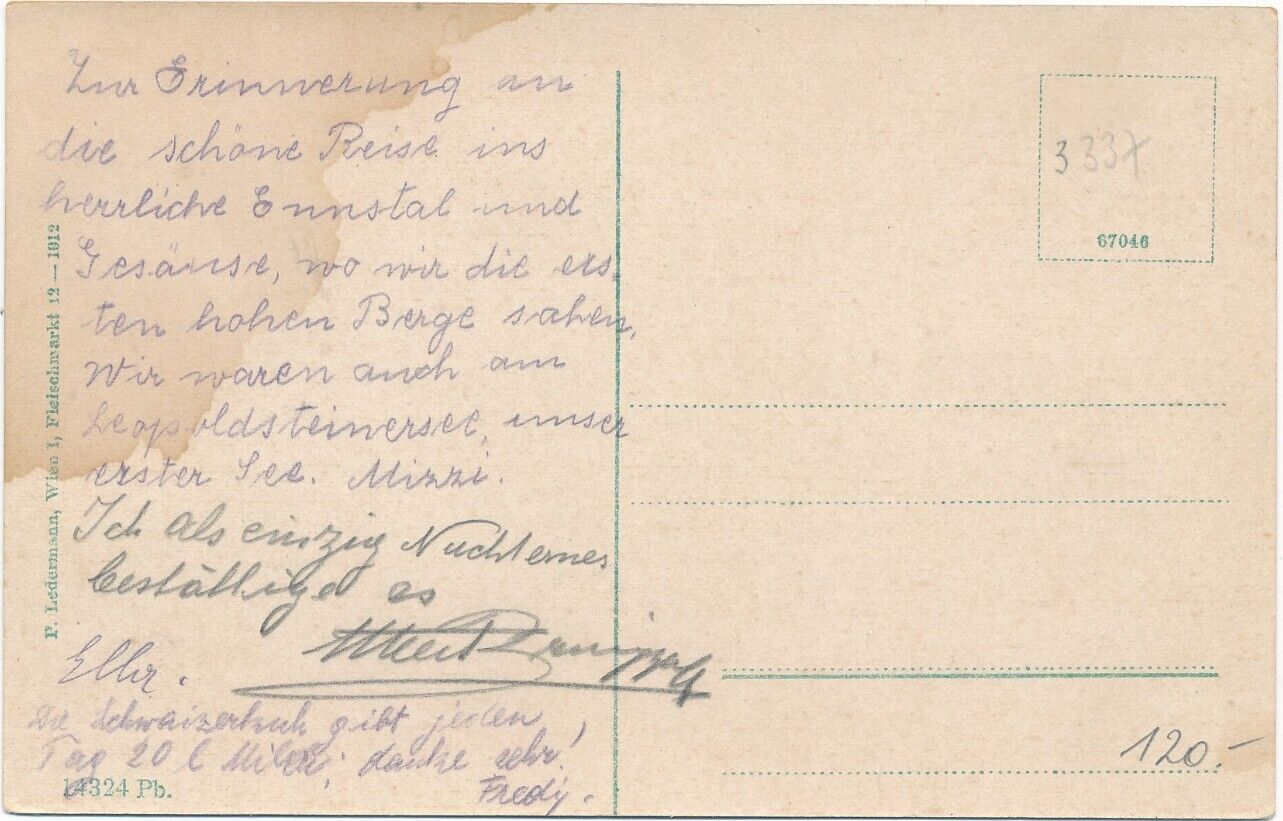 Zur Erinnerung an
die schöne Reise ins
herrliche Ennstal und
Gesäuse, wo wir die ers-
ten hohen Berge sahen,
Wir waren auch am
Leopoldsteinersee, unser
erster See. Mizzi.
Ich als einzig Nüchternes
bestättige es
Albert
Elly.
Die Schwaizerkuh gibt jeden
Tag 20 l Milch; danke sehr!
Fredy.
14324 Pb.
P. Ledermann, Wien I, Fleischmarkt 12 — 1912
3337
67046
120.-